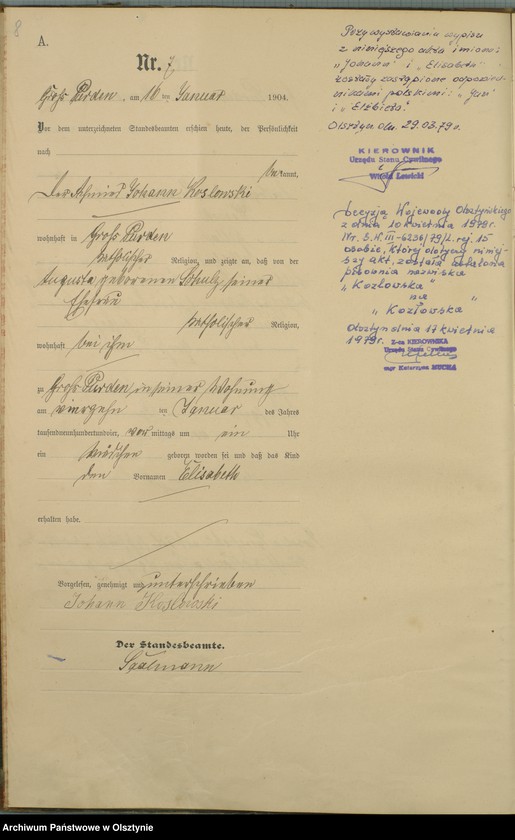 8
A.
Nr. 7
Groß Purden, am 16 ten Januar 1904.
Vor dem unterzeichneten Standesbeamten erschien heute, der Persönlichkeit
nach
bekannt,
Der Johann Koslowski
wohnhaft in Groß Purden
katholischer Religion, und zeigte an, daß von der
Augusta geborenen Schulz seiner
Ehefrau
katholischer Religion,
wohnhaft bei ihm
zu Groß Purden, in seiner Wohnung
am vierzehn ten Januar des Jahres
tausendneunhundertundvier, vor mittags um ein Uhr
ein Mädchen geboren worden sei und daß das Kind
den Vornamen Elisabeth
erhalten habe.
Vorgelesen, genehmigt und unterschrieben
Johann Koslowski
Der Standesbeamte.
Saalmann
Przy wystawianiu wypisu
z niniejszego aktu imiona:
"Johann" i "Elisabeth"
zostały zastąpione odpowied-
nikami polskimi: "Jan"
i "Elżbieta".
Olsztyn dn. 29.03.79r.
KIEROWNIK
Urzędu Stanu Cywilnego
Witold Zawicki
Decyzją Wojewody Olsztyńskiego
z dnia 10 kwietnia 1979r.
Nr. S.A.III-6236/79/2. rej. 15
osobie, której dotyczy niniej-
szy akt, została ustalona
pisownia nazwiska
"Kozlowska"
na
"Kozłowska"
Olsztyn dnia 17 kwietnia
1979r.
Z-ca KIEROWNIKA
Urzędu Stanu Cywilnego
mgr Katarzyna MUCHA
Archiwum Państwowe w Olsztynie